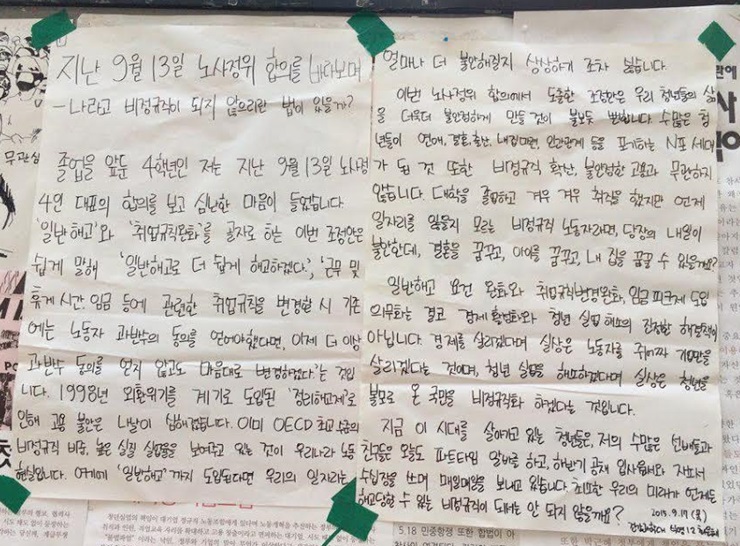 지난 9월 13일 노사정위 합의를 바라보며
- 나라고 비정규직이 되지 않으리란 법이 있을까?
졸업을 앞둔 4학년인 저는 지난 9월 13일 노사정
4인 대표의 합의를 보고 심난한 마음이 들었습니다.
'일반해고'와 '취업규칙완화'를 골자로 하는 이번 조정안은
쉽게 말해 '일반해고로 더 쉽게 해고하겠다', '근무 및
휴게시간, 임금 등에 관련한 취업규칙을 변경할 시 기존
에는 노동자 과반수의 동의를 얻어야했다면, 이제 더 이상
과반수 동의를 얻지 않고도 마음대로 변경하겠다'는 것입
니다. 1998년 외환위기를 계기로 도입된 '정리해고제'로
인해 고용 불안은 나날이 심해졌습니다. 이미 OECD 최고 수준의
비정규직 비중, 높은 실질 실업률을 보여주고 있는 것이 우리나라 노동
현실입니다. 여기에 '일반해고'까지 도입된다면 우리의 일자리는
얼마나 더 불안해질지 상상하기 조차 싫습니다.
이번 노사정위 합의에서 도출한 조정안은 우리 청년들의 삶
을 더욱더 불안정하게 만들 것이 불보듯 뻔합니다. 수많은 청
년들이 연애, 결혼, 출산, 내집마련, 인간관계 등을 포기하는 N포세대
가 된 것 또한 비정규직 확산, 불안정한 고용과 무관하지
않습니다. 대학을 졸업하고 겨우 겨우 취직을 했지만 언제
일자리를 잃을지 모르는 비정규직 노동자라면, 당장의 내일이
불안한데, 결혼을 꿈꾸고, 아이를 꿈꾸고, 내 집을 꿈꿀 수 있을까요?
일반해고 요건 완화와 취업규칙변경완화, 임금 피크제 도입
의무화는 결코 경제 활성화와 청년 실업 해소의 진정한 해결책이
아닙니다. 경제를 살리겠다며 실상은 노동자를 쥐어짜 기업만을
살리겠다는 것이며, 청년 실업을 해소하겠다며 실상은 청년들을
볼모로 온 국민을 비정규직화 하겠다는 것입니다.
지금 이 시대를 살아가고 있는 청년들은, 저의 수많은 선배들과
친구들은 오늘도 파트타임 알바를 하고, 하반기 공채 입사원서와 자소서
수십장을 쓰며 매일매일을 보내고 있습니다. 최소한 우리의 미래가 언제든
해고당할 수 있는 비정규직이 되어서는 안 되지 않을까요?
2015.9.17(목)
5.18 민중항쟁 또한 합법이 아